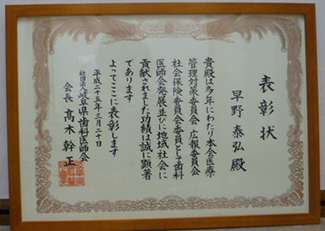 表彰状
早野泰弘殿
貴殿は多年にわたり本会医療
管理対策委員会・広報委員会
社会保険委員会委員として歯科
医師会発展並びに地域社会に
貢献されました功績は誠に顕著
であります
よってここに表彰します
平成二十五年三月二十日
社団法人岐阜県歯科医師会
会長 髙木幹正